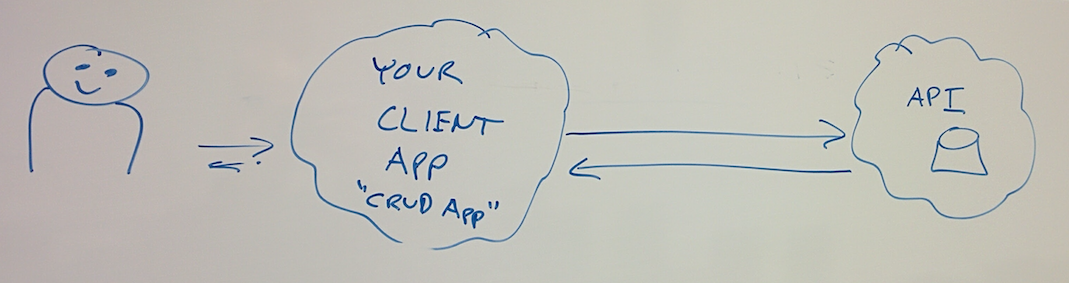 YOUR
CLIENT
APP
"CRUD APP"
?
API